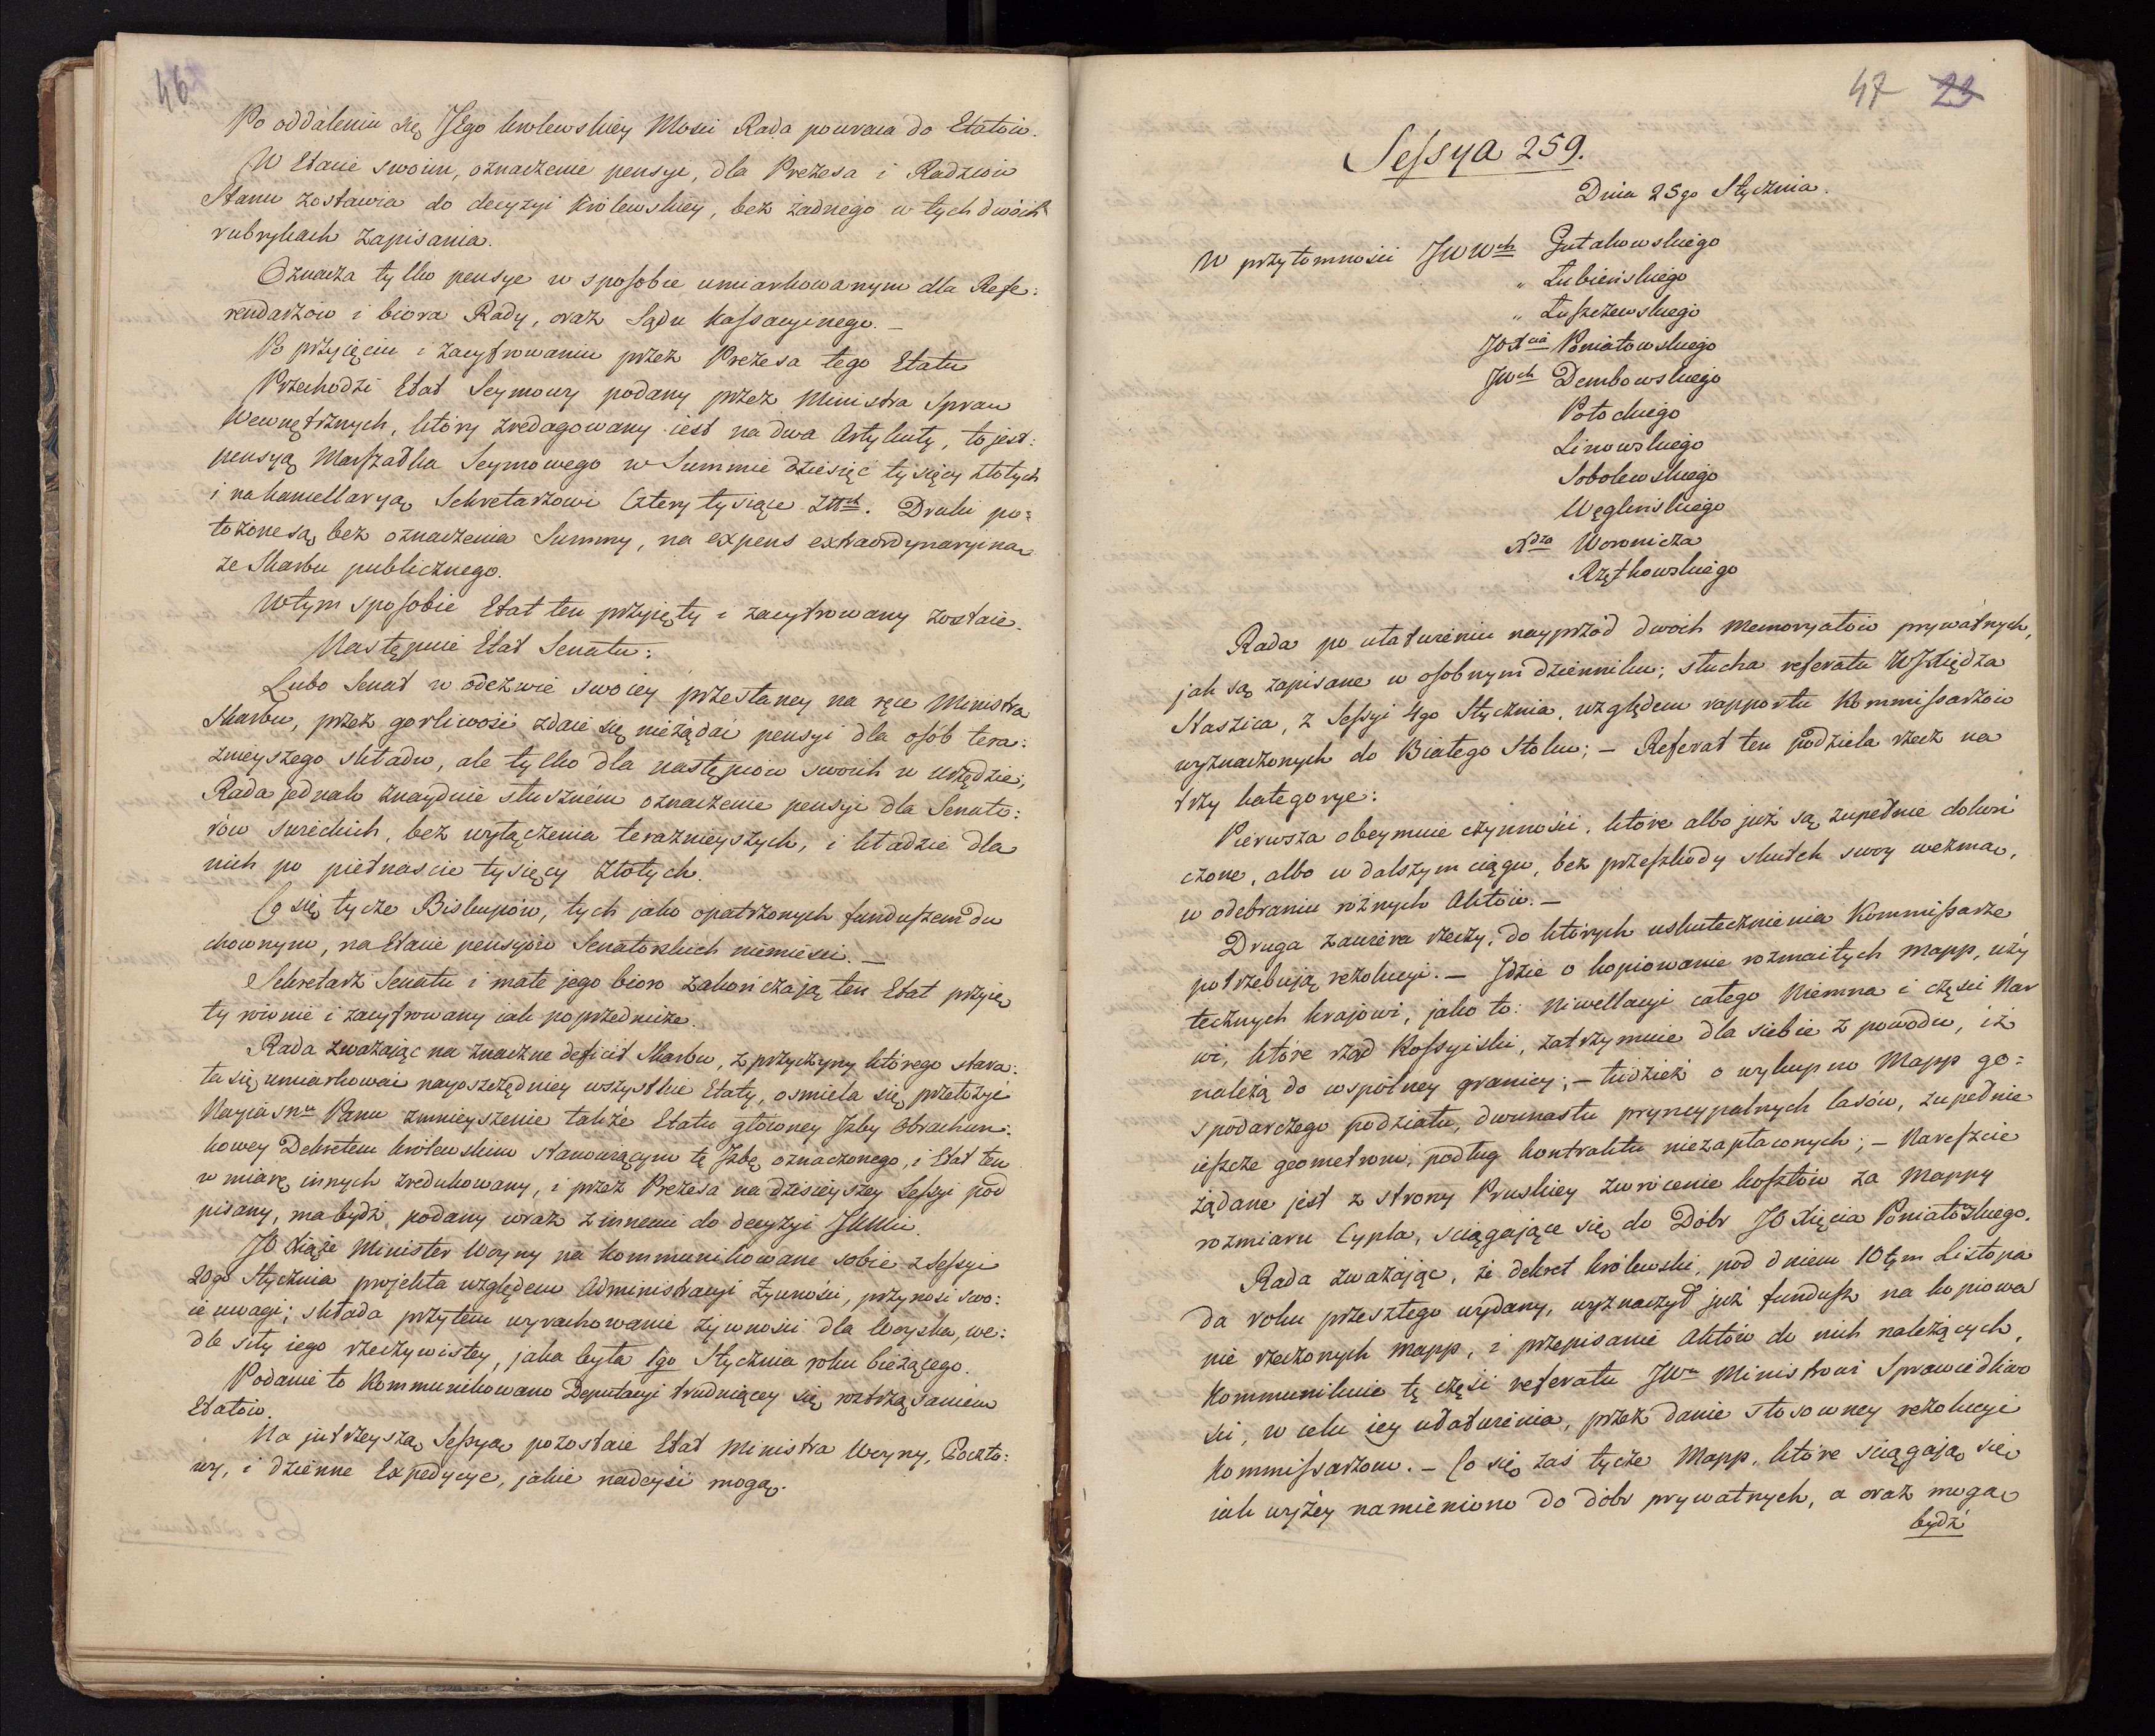 46
Po oddaleniu się JEgo krolewskiey Mości Rada powraca do Etatów.
W Etacie swoim, oznaczenie pensyi, dla Prezesa i Radzców
Stanu zostawia do decyzyi królewskiey, bez żadnego w tych dwóch
rubrykach zapisania.
Oznacza tylko pensye w sposobie umiarkowanym dla Refe:
rendarzów i biora Rady, oraz Sądu Kassacyinego. —
Po przyięciu i zacyfrowaniu przez Prezesa tego Etatu
Przechodzi Etat Seymowy podany przez Ministra Spraw
Wewnętrznych, który zredagowany iest na dwa Artykuty, to jest:
pensyą Marszałka Seymowego w Summie dziesięć tysięcy złotych
i na kancellaryą Sekretarzowi Cztery tysiące złłch. Druki po:
łożone są, bez oznaczenia Summy, na expens extraordynaryiną
ze Skarbu publicznego.
W tym sposobie Etat ten przyięty i zacyfrowany zostaie.
Następnie Etat Senatu:
Lubo Senat w odezwie swoiey przesłaney na ręce Ministra
Skarbu, przez gorliwość zdaie się nieżądać pensyi dla osób tera:
znieyszego składu, ale tylko dla następców swoich w urzędzie;
Rada jednak znayduie słuszném oznaczenie pensyi dla Senato:
rów świeckich, bez wyłączenia teraznieyszych, i kładzie dla
nich po pietnaście tysięcy złotych.
Co się tycze Biskupów, tych jako opatrzonych funduszem du
chownym, na Etacie pensyów Senatorskich niemieści. —
Sekretarz Senatu i małe jego bioro zakończają ten Etat przyię
ty równie i zacyfrowany iak poprzednicze.
Rada zważając na znaczne deficit Skarbu, z przyczyny którego stara:
ła się umiarkować nayoszczędniey wszystkie Etaty, osmiela się przełożyć
Nayiasnu Panu zmnieyszenie także Etatu główney Izby Obrachun:
kowey Dekretem królewskim stanowiącym tę Izbę oznaczonego, i Etat ten
w miarę innych zredukowany, i przez Prezesa na dzisieyszey Sessyi pod
pisany, ma bydź podany wraz z innemi do decyzyi JKMci.
JO Xiąże Minister Woyny na kommunikowane sobie z Sessyi
20go Stycznia projekta względem Administracyi Żywności, przynosi swo:
ie uwagi; składa przytem wyrachowanie żywności dla Woyska, we:
dle siły iego rzeczywistey, jaka była 1go Stycznia roku bieżącego.
Podanie to Kommunikowano Deputacyi trudniącey się roztrząsaniem
Etatów.
Na jutrzeyszą Sessyą pozostaie Etat Ministra Woyny, Poczto:
wy, i dzienne Expedycye, jakie nadeyść mogą.
47 23
Sessya 259.
Dnia 25go Stycznia.
W przytomności JWWch Gutakowskiego
" Łubieńskiego
" Łuszczewskiego
JOXcia Poniatowskiego
JWch Dembowskiego
Potockiego
Linowskiego
Sobolewskiego
Węgleńskiego
Xdza Woronicza
Rzętkowskiego
Rada po ułatwieniu nayprzód dwóch Memoryałów prywatnych,
jak są zapisane w osobnym dzienniku; słucha referatu WXiędza
Staszica, z Sessyi 4go Stycznia, względem rapportu Kommissarzów
wyznaczonych do Białego Stoku; — Referat ten podziela rzecz na
trzy kategorye:
Pierwsza obeymuie czynności, które albo już są zupełnie dokoń
czone, albo w dalszym ciągu, bez przeszkody skutek swoy wezmą,
w odebraniu różnych Aktów. —
Druga zawiera rzeczy, do których uskutecznienia Kommissarze
potrzebują rezolucyi. — Idzie o kopiowanie rozmaitych mapp, uży
tecznych krajowi, jako to: Niwellacyi całego Niemna i części Nar
wi, które rząd Rossyiski, zatrzymuie dla siebie z powodu, iż
należą do wspólney granicy; — tudzież o wykupno Mapp go:
spodarczego podziału, dwunastu pryncypalnych lasów, zupełnie
ieszcze geometrom, podług kontraktu niezapłaconych; — Nareszcie
żądane jest z strony Pruskiey zwrócenie kosztów za Mappy
rozmiaru Cypla, sciągające się do Dóbr JO Xięcia Poniatoskiego.
Rada zważając, że dekret królewski, pod dniem 10tym Listopa
da roku przeszłego wydany, wyznaczył już fundusz na kopiowa
nie rzeczonych mapp, i przepisanie Aktów do nich należących,
Kommunikuie tę część referatu JWu Ministrowi Sprawiedliwo
ści, w celu iey ułatwienia, przez danie stosowney rezolucyi
Kommissarzom. — Co się zaś tycze Mapp, które sciągają się
iak wyżey namieniono do dóbr prywatnych, a oraz mogą
bydź